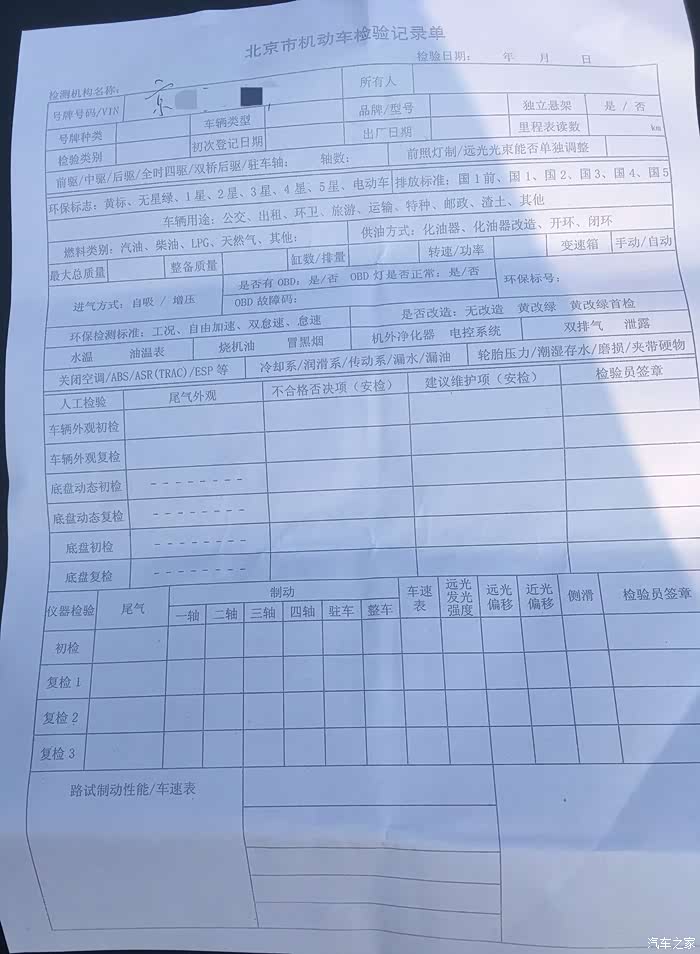 北京市机动车检验记录单
检验日期： 年 月 日
检测机构名称：
号牌号码/VIN 京 所有人
号牌种类 车辆类型 品牌/型号 独立悬架 是 / 否
检验类别 初次登记日期 出厂日期 里程表读数 km
前驱/中驱/后驱/全时四驱/双桥后驱/驻车轴； 轴数： 前照灯制/远光光束能否单独调整
环保标志：黄标、无星绿、1星、2星、3星、4星、5星、电动车 排放标准：国1前、国1、国2、国3、国4、国5
车辆用途：公交、出租、环卫、旅游、运输、特种、邮政、渣土、其他
燃料类别：汽油、柴油、LPG、天然气、其他： 供油方式：化油器、化油器改造、开环、闭环
最大总质量 整备质量 缸数/排量 转速/功率 变速箱 手动/自动
进气方式：自吸 / 增压 是否有OBD：是/否 OBD灯是否正常：是/否 环保标号：
OBD故障码：
环保检测标准：工况、自由加速、双怠速、怠速 是否改造：无改造 黄改绿 黄改绿首检
水温 油温表 烧机油 冒黑烟 机外净化器 电控系统 双排气 泄露
关闭空调/ABS/ASR(TRAC)/ESP 等 冷却系/润滑系/传动系/漏水/漏油 轮胎压力/潮湿存水/磨损/夹带硬物
人工检验 尾气外观 不合格否决项（安检） 建议维护项（安检） 检验员签章
车辆外观初检
车辆外观复检
底盘动态初检 - - - - - - - -
底盘动态复检 - - - - - - - -
底盘初检 - - - - - - - -
底盘复检 - - - - - - - -
仪器检验 尾气 制动 车速表 远光发光强度 远光偏移 近光偏移 侧滑 检验员签章
一轴 二轴 三轴 四轴 驻车 整车
初检
复检1
复检2
复检3
路试制动性能/车速表
汽车之家